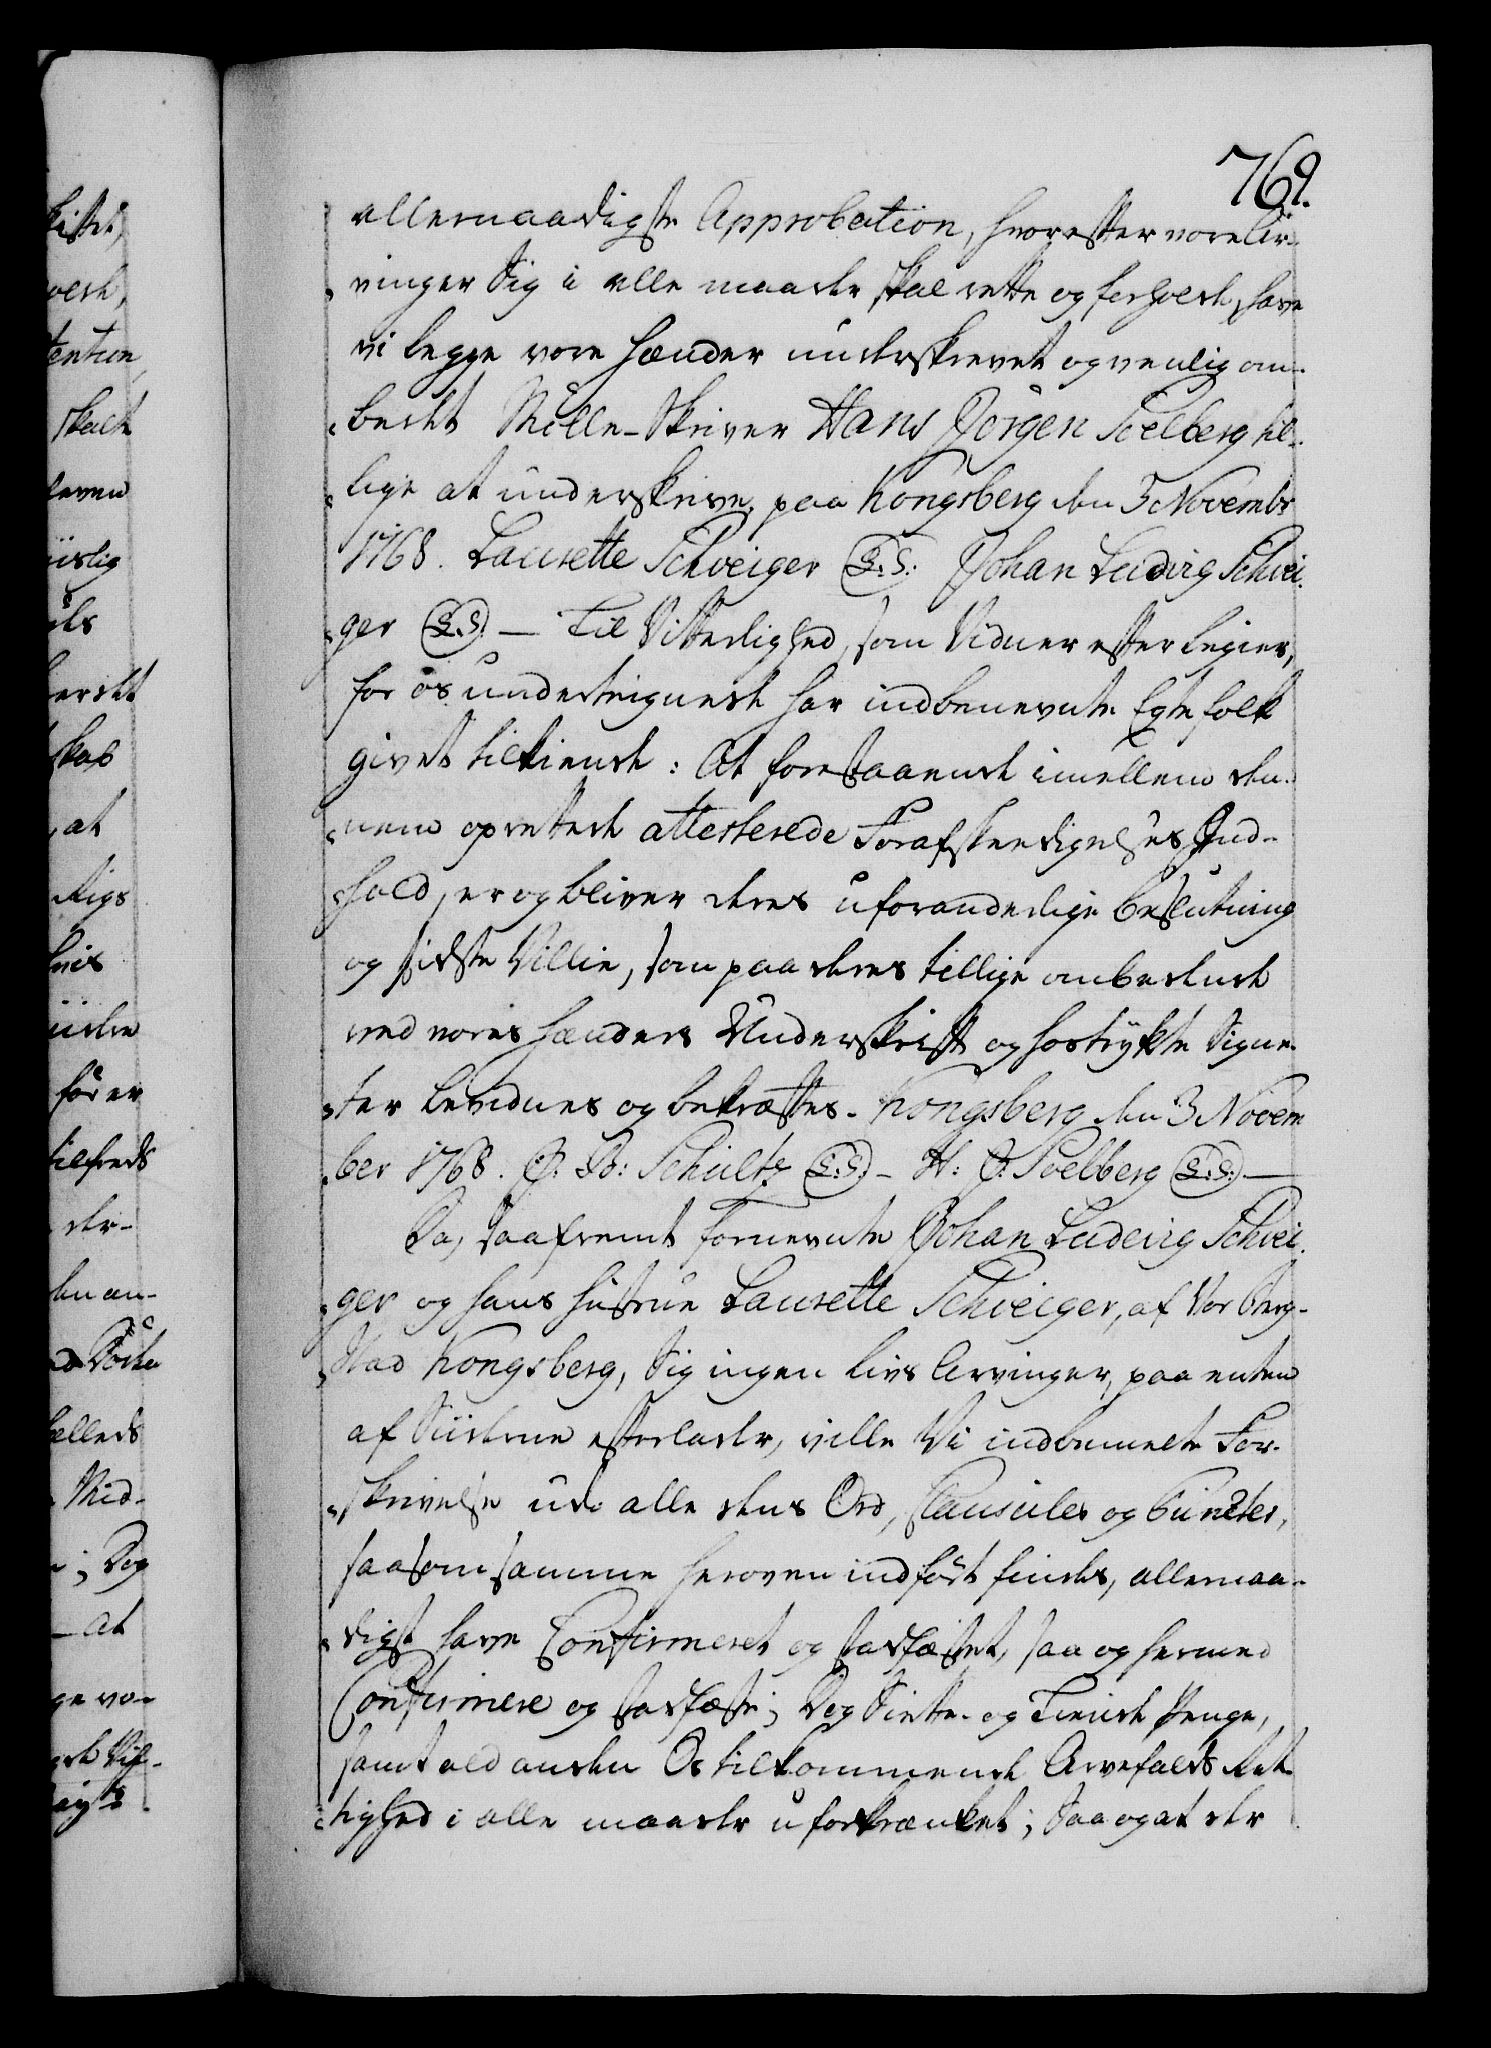 769.
allernaadigste Approbation, hvorefter vore Ar-
vinger Sig i alle maade skal rette og forholde, have
vi begge vore Hænder underskrevet og venlig om-
bedet Mølle-Skriver Hans Jørgen Soelberg til-
lige at underskrive, paa Kongsberg den 3 Novembr
1768. Laurette Schveiger (L.S.) Johan Ludvig Schvei-
ger (L.S.) — Til Vitterlighed, som Vidner efter begier,
for os underteignede har indbenevnte Egte folk
givet tilkiende: At forestaaende imellem den-
nem oprettede attesterede Forafskeedigelses Ind-
hold, er og bliver deres uforanderlige beslutning
og sidste Villie, som paa deres tillige ombedende
med vores Hænders Underskrift og hostrykte Signe-
ter bevidnes og bekræftes. Kongsberg den 3 Novem
ber 1768. J. B: Schultz (L.S.) — H: J. Soelberg (L.S.) —
Da, saafremt fornevnte Johan Ludevig Schvei-
ger og hans Hustrue Laurette Schveiger, af Vor Berg-
stad Kongsberg, Sig ingen Livs Arvinger, paa enten
af Siiderne efterlader, ville Vi indbemelte For-
skrivelse udi alle dens Ord, Clausuler og Puncter,
saasom samme heroven indført findes, allernaa-
digst have Confirmeret og stadfæstet, saa og hermed
Confirmere og stadfæste; Dog Siette- og Tiende Penge,
samt ald anden Os tilkommende Arvefalds Ret-
tighed i alle maader uforkrænket; Saa og at der
tention,
skulde
at
før er
Dog
— At